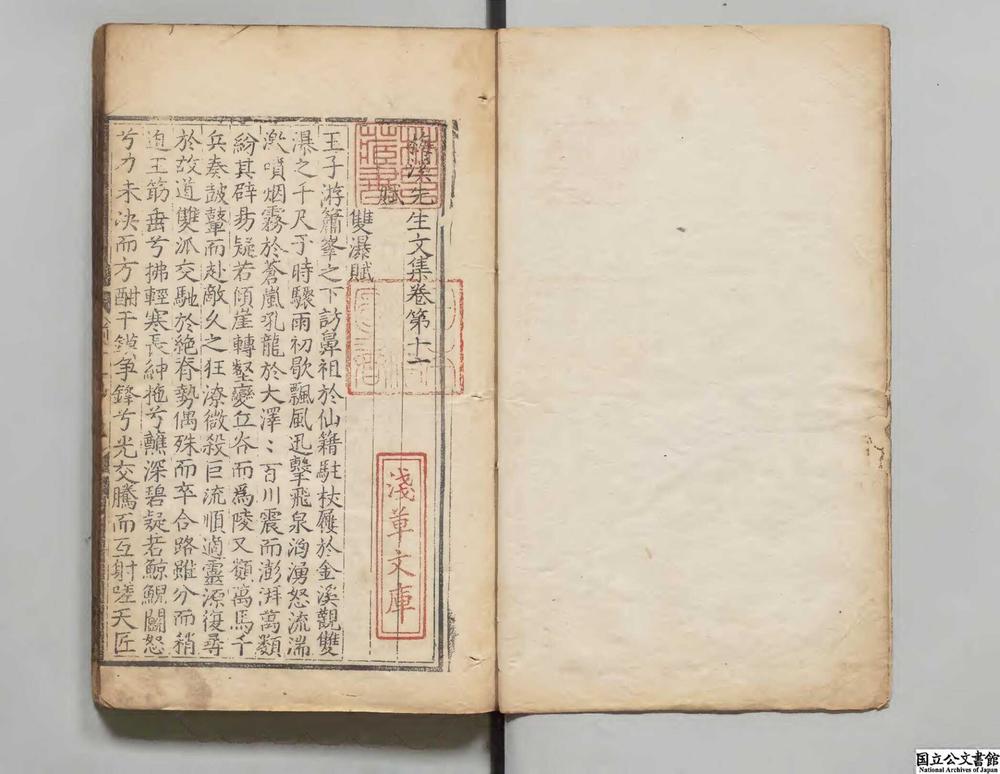 澹溪先生文集卷第十一
賦
雙瀑賦
王子游簫峯之下訪鼻祖於仙籍駐杖屨於金溪觀雙
瀑之千尺于時驟雨初歇飄風迅擊飛泉洶湧怒流湍
激噴烟霧於蒼嵐吼龍於大澤:百川震而澎湃萬
紛其辟易疑若傾崖轉壑變丘谷而爲陵又類萬馬千
兵奏皷鼙而赴敵久之狂潦微殺巨流順適靈源復尋
於故道雙派交馳於絶脊勢偶殊而卒合路雖分而稍
迫玉筯垂兮拂輕寒長紳拖兮蘸深碧疑若鯨鯢鬬怒
兮力未决而方酣干鏌争鋒兮光交騰而互射嗟天匠
淺草文庫
国立公文書館
National Archives of Japan